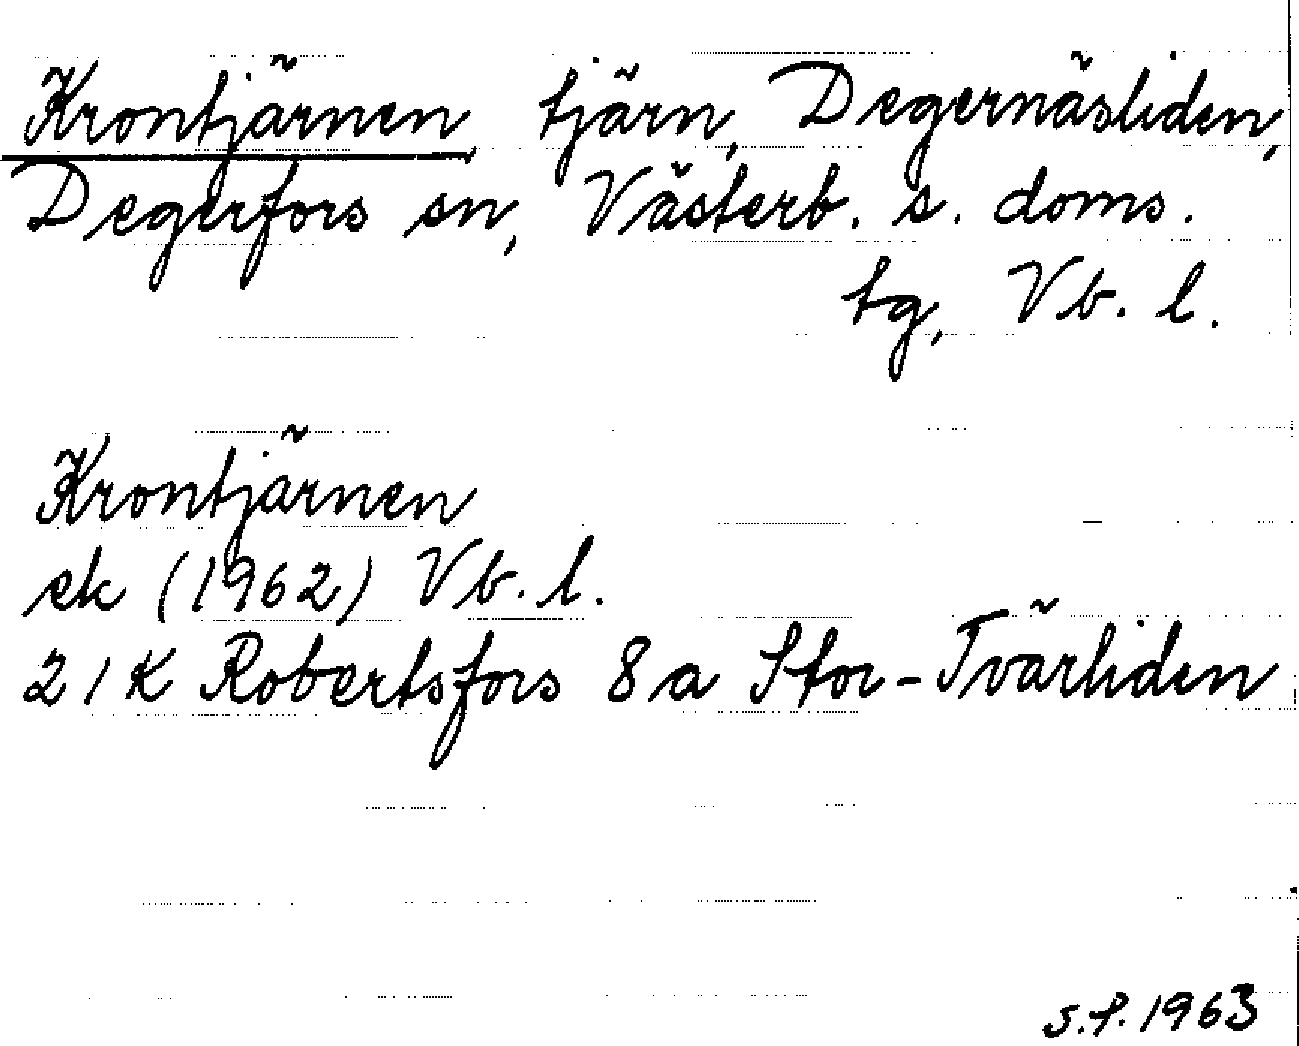 Krontjärnen, tjärn, Degernäsliden,
Degerfors sn, Västerb. s. doms.
tg, Vb. l.
Krontjärnen
ek (1962) Vb. l.
21K Robertsfors 8a Stor-Tvärliden
S.P. 1963